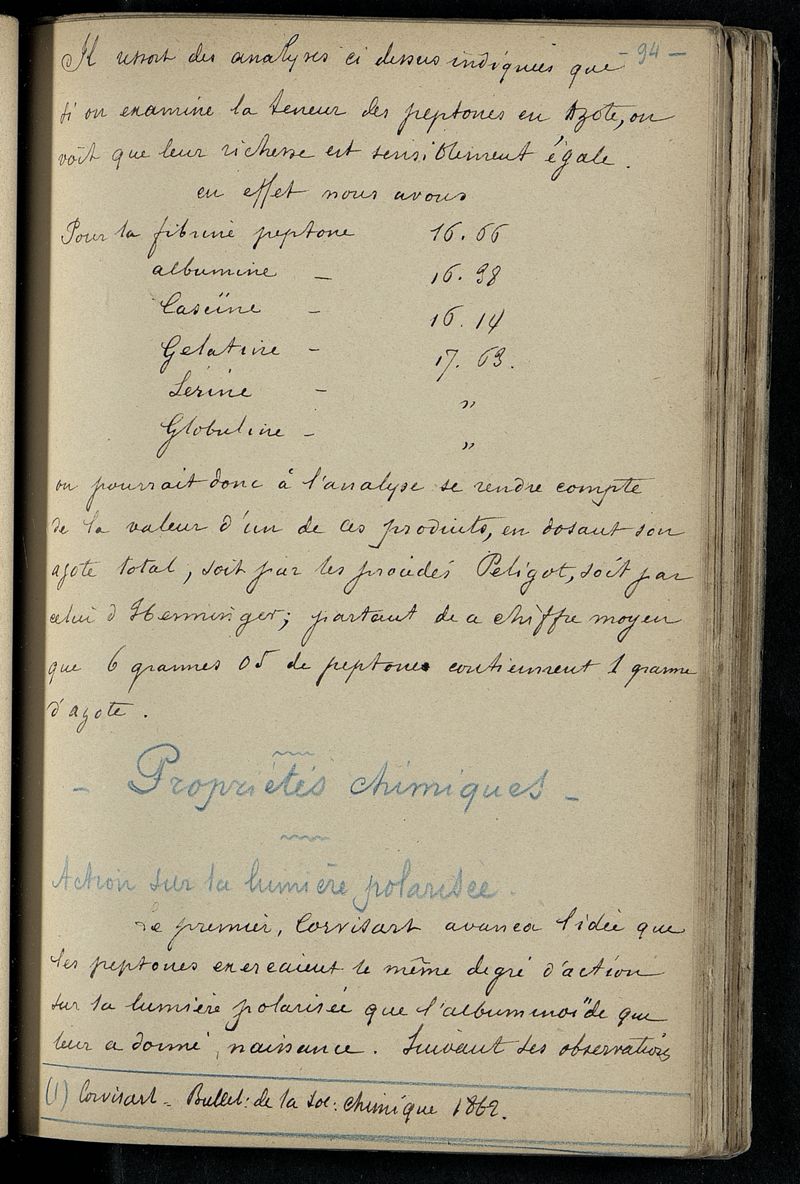 - 94 -
Il ressort des analyses ci dessus indiquées que
si on examine la teneur des peptones en Azote, on
voit que leur richesse est sensiblement égale.
en effet nous avons
Pour la fibrine peptone 16.66
albumine - 16.38
Caséïne - 16.14
Gelatine - 17.63.
Sérine - "
Globuline - "
on pourrait donc à l'analyse se rendre compte
de la valeur d'un de ces produits, en dosant son
azote total, soit par les procédés Peligot, soit par
celui d'Henninger; partant de ce chiffre moyen
que 6 grammes 05 de peptones contiennent 1 gramme
d'azote.
- Propriétés chimiques -
Action sur la lumière polarisée.
Le premier, Corvisart avanca l'idée que
les peptones exercaient le même degré d'action
sur la lumière polarisée que l'albuminoïde que
leur a donné, naissance. Suivant ses observations
(1) Corvisart - Bullet: de la Soc: chimique 1862.